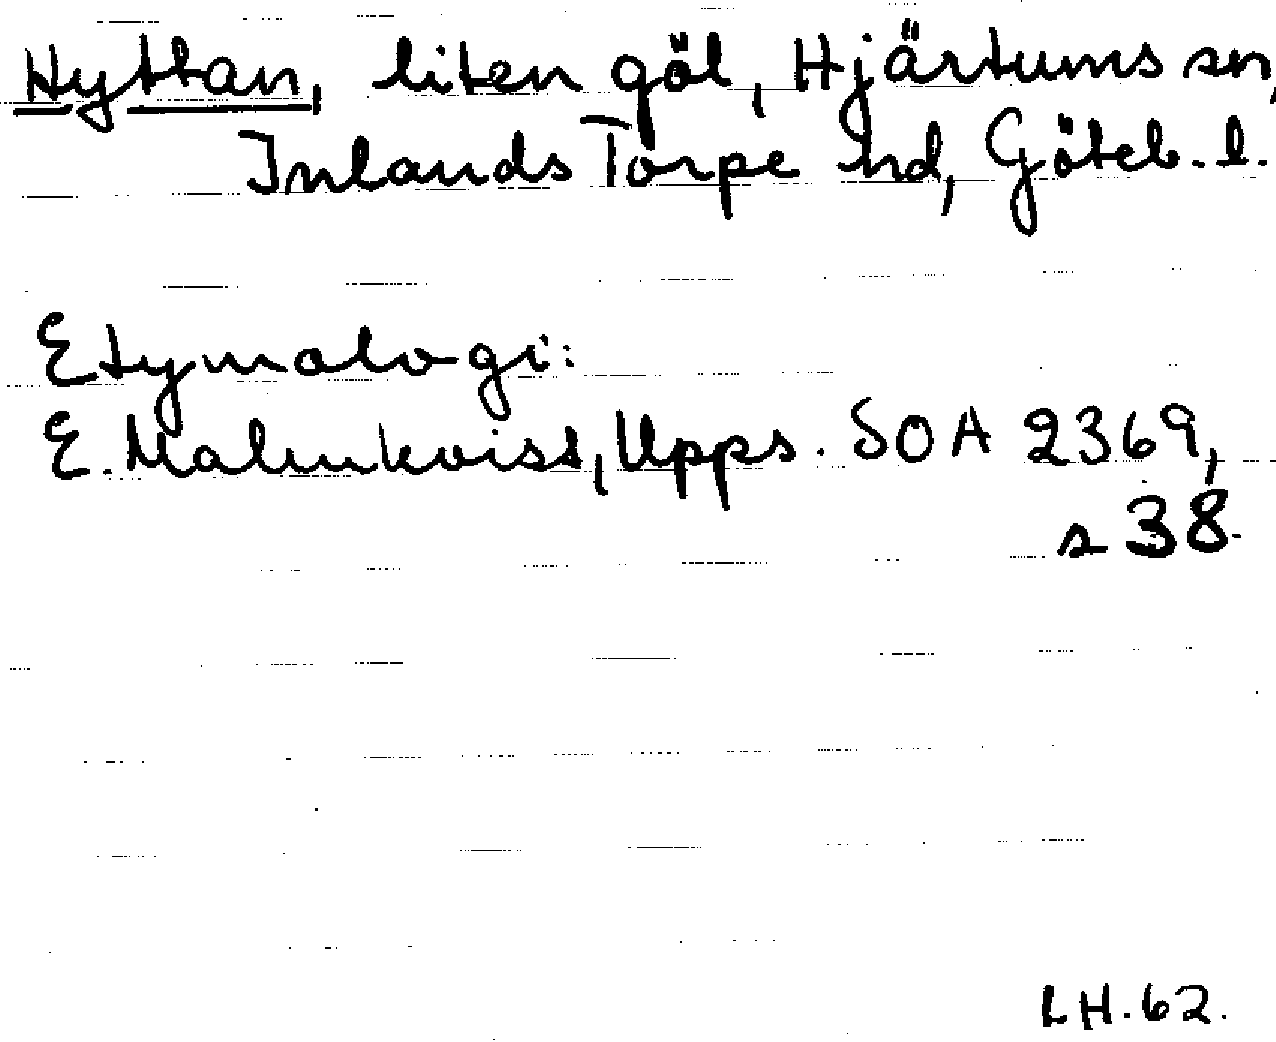 Hyttan, liten göl, Hjärtums sn,
Inlands Torpe hd, Göteb. l.
Etymologi:
E. Malmkvist, Upps. SOA 2369,
s 38.
LH. 62.